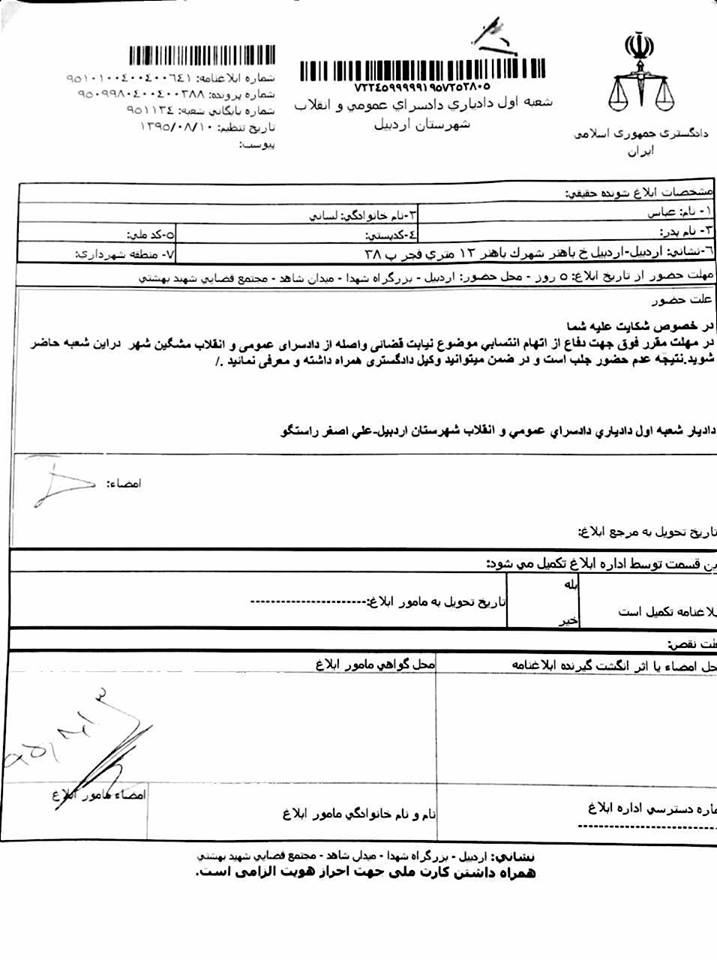 دادگستری جمهوری اسلامی
ایران
۷۲۲۴۵۹۹۹۹۱۹۵۷۲۵۲۸۰۵
شعبه اول دادیاری دادسرای عمومی و انقلاب
شهرستان اردبیل
شماره ابلاغنامه: ۹۵۱۰۱۰۰۴۰۰۴۰۰۶۴۱
شماره پرونده: ۹۵۰۹۹۸۰۴۰۰۴۰۰۳۸۸
شماره بایگانی شعبه: ۹۵۱۱۳۴
تاریخ تنظیم: ۱۳۹۵/۰۸/۱۰
پیوست:
مشخصات ابلاغ شونده حقیقی:
۱- نام: عباس
۲-نام خانوادگی: لسانی
۳- نام پدر:
۴-کدپستی:
۵-کد ملی:
۶-نشانی: اردبیل-اردبیل خ باهنر شهرک باهنر ۱۲ متری فجر پ ۳۸
۷- منطقه شهرداری:
مهلت حضور از تاریخ ابلاغ: ۵ روز - محل حضور: اردبیل - بزرگراه شهدا - میدان شاهد - مجتمع قضایی شهید بهشتی
علت حضور
در خصوص شکایت علیه شما
در مهلت مقرر فوق جهت دفاع از اتهام انتسابی موضوع نیابت قضائی واصله از دادسرای عمومی و انقلاب مشگین شهر دراین شعبه حاضر
شوید.نتیجه عدم حضور جلب است و در ضمن میتوانید وکیل دادگستری همراه داشته و معرفی نمائید ./
دادیار شعبه اول دادیاری دادسرای عمومی و انقلاب شهرستان اردبیل-علی اصغر راستگو
امضاء:
تاریخ تحویل به مرجع ابلاغ:
ین قسمت توسط اداره ابلاغ تکمیل می شود:
بلاغنامه تکمیل است
بله
خیر
تاریخ تحویل به مامور ابلاغ:-----------------------
علت نقص:
حل امضاء یا اثر انگشت گیرنده ابلاغنامه
محل گواهی مامور ابلاغ
۹۵/۸/۱۳
ماره دسترسی اداره ابلاغ
نام و نام خانوادگی مامور ابلاغ
امضاء مامور ابلاغ
نشانی: اردبیل - بزرگراه شهدا - میدان شاهد - مجتمع قضایی شهید بهشتی
همراه داشتن کارت ملی جهت احراز هویت الزامی است.